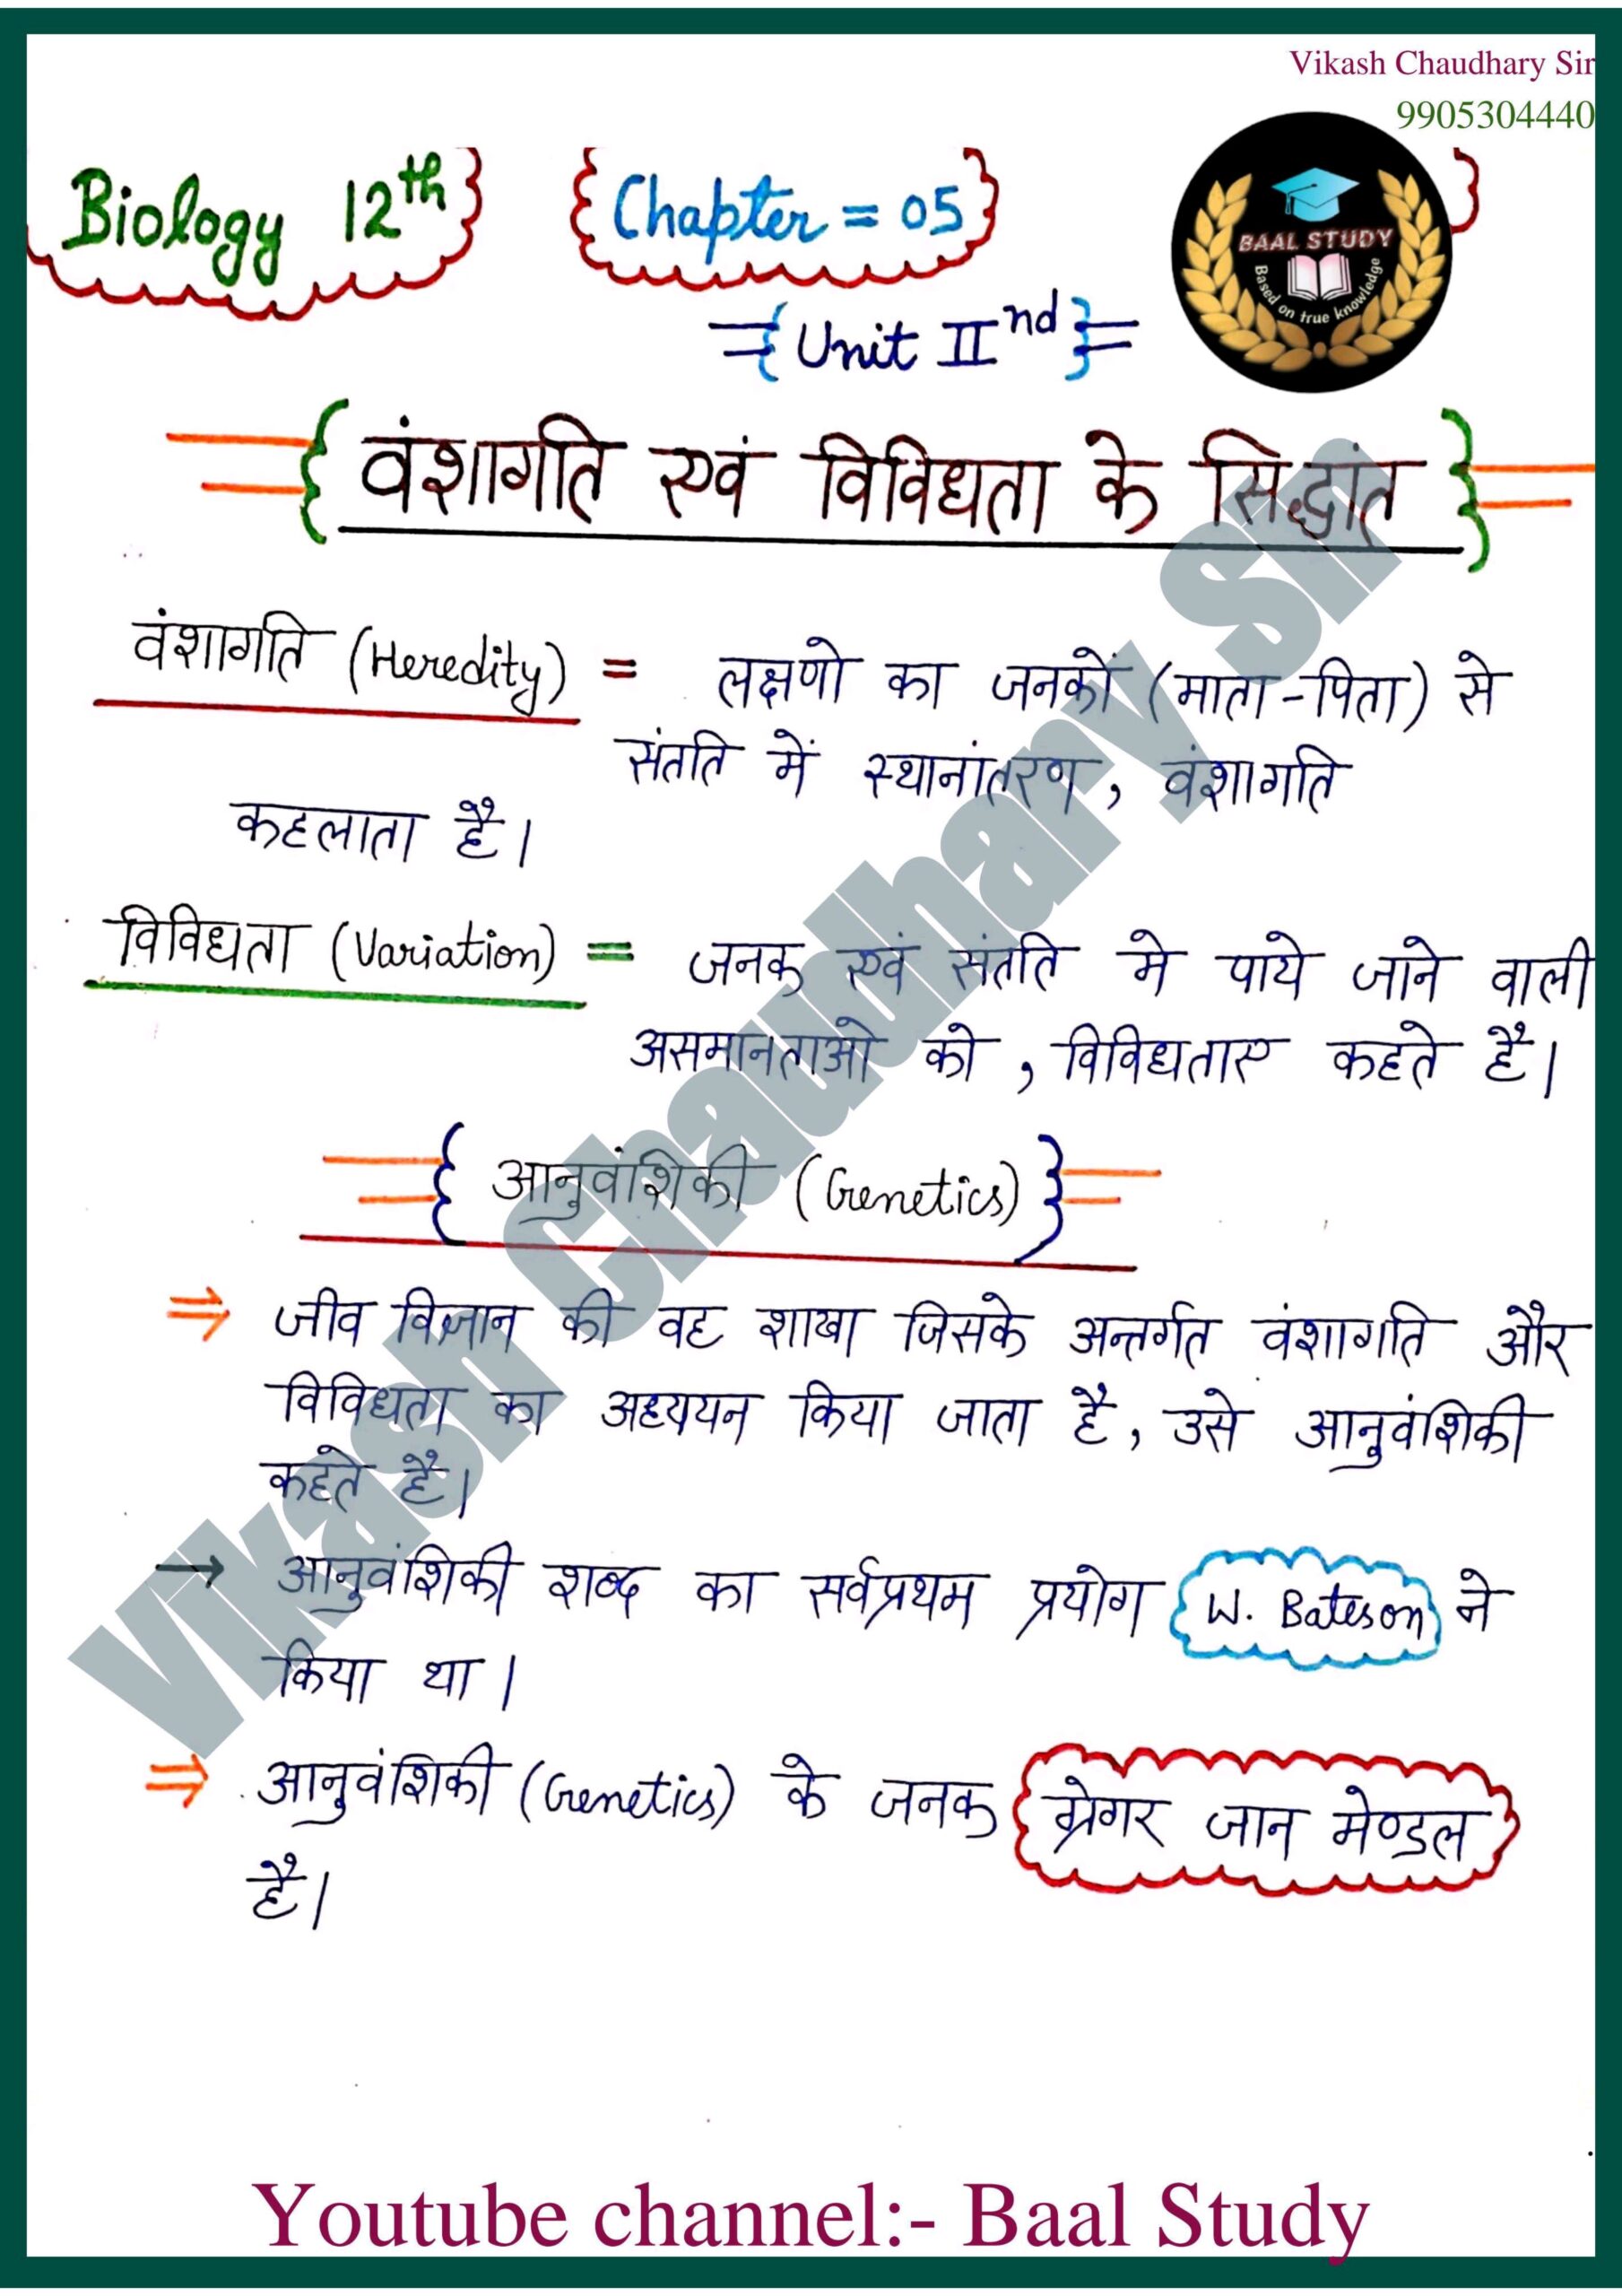 Vikash Chaudhary Sir
9905304440
Biology 12th
Chapter = 05
BAAL STUDY
Based on true knowledge
Unit IInd
वंशागति एवं विविधता के सिद्धांत
वंशागति (Heredity) = लक्षणो का जनकों (माता-पिता) से
संतति में स्थानांतरण, वंशागति
कहलाता है।
विविधता (Variation) = जनक एवं संतति मे पाये जाने वाली
असमानताओ को, विविधताए कहते हैं।
आनुवांशिकी (Genetics)
⇒ जीव विज्ञान की वह शाखा जिसके अन्तर्गत वंशागति और
विविधता का अध्ययन किया जाता है, उसे आनुवंशिकी
कहते है।
→ आनुवंशिकी शब्द का सर्वप्रथम प्रयोग W. Bateson ने
किया था।
⇒ आनुवंशिकी (Genetics) के जनक ग्रेगर जान मेण्डल
है।
Vikash Chaudhary Sir
Youtube channel:- Baal Study